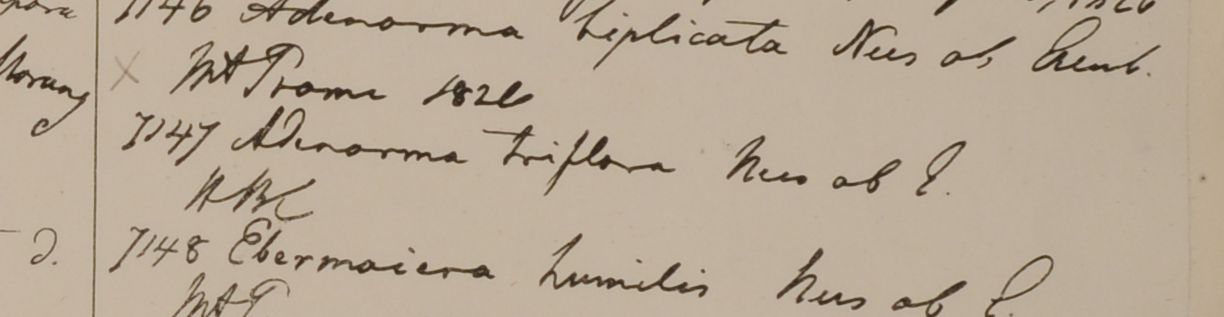 7146 Adenosma biplicata Nees ab Esenb.
Morung
x Mt Prome 1826
7147 Adenosma triflora Nees ab E.
HBC
d. 7148 Ebermaiera humilis Nees ab E.